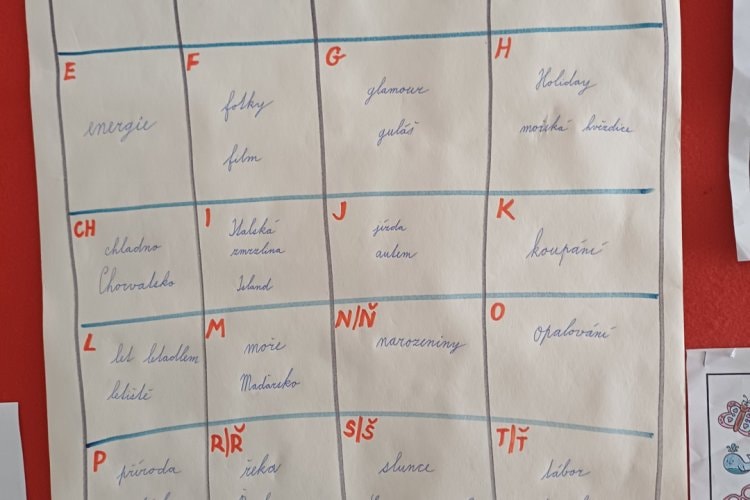 E
energie
F
fotky
film
G
glamour
guláš
H
Holiday
mořská hvězdice
CH
chladno
Chorvatsko
I
Italská
zmrzlina
Island
J
jízda
autem
K
koupání
L
let letadlem
letiště
M
moře
Maďarsko
N/Ň
narozeniny
O
opalování
P
příroda
R/Ř
řeka
S/Š
slunce
T/Ť
tábor